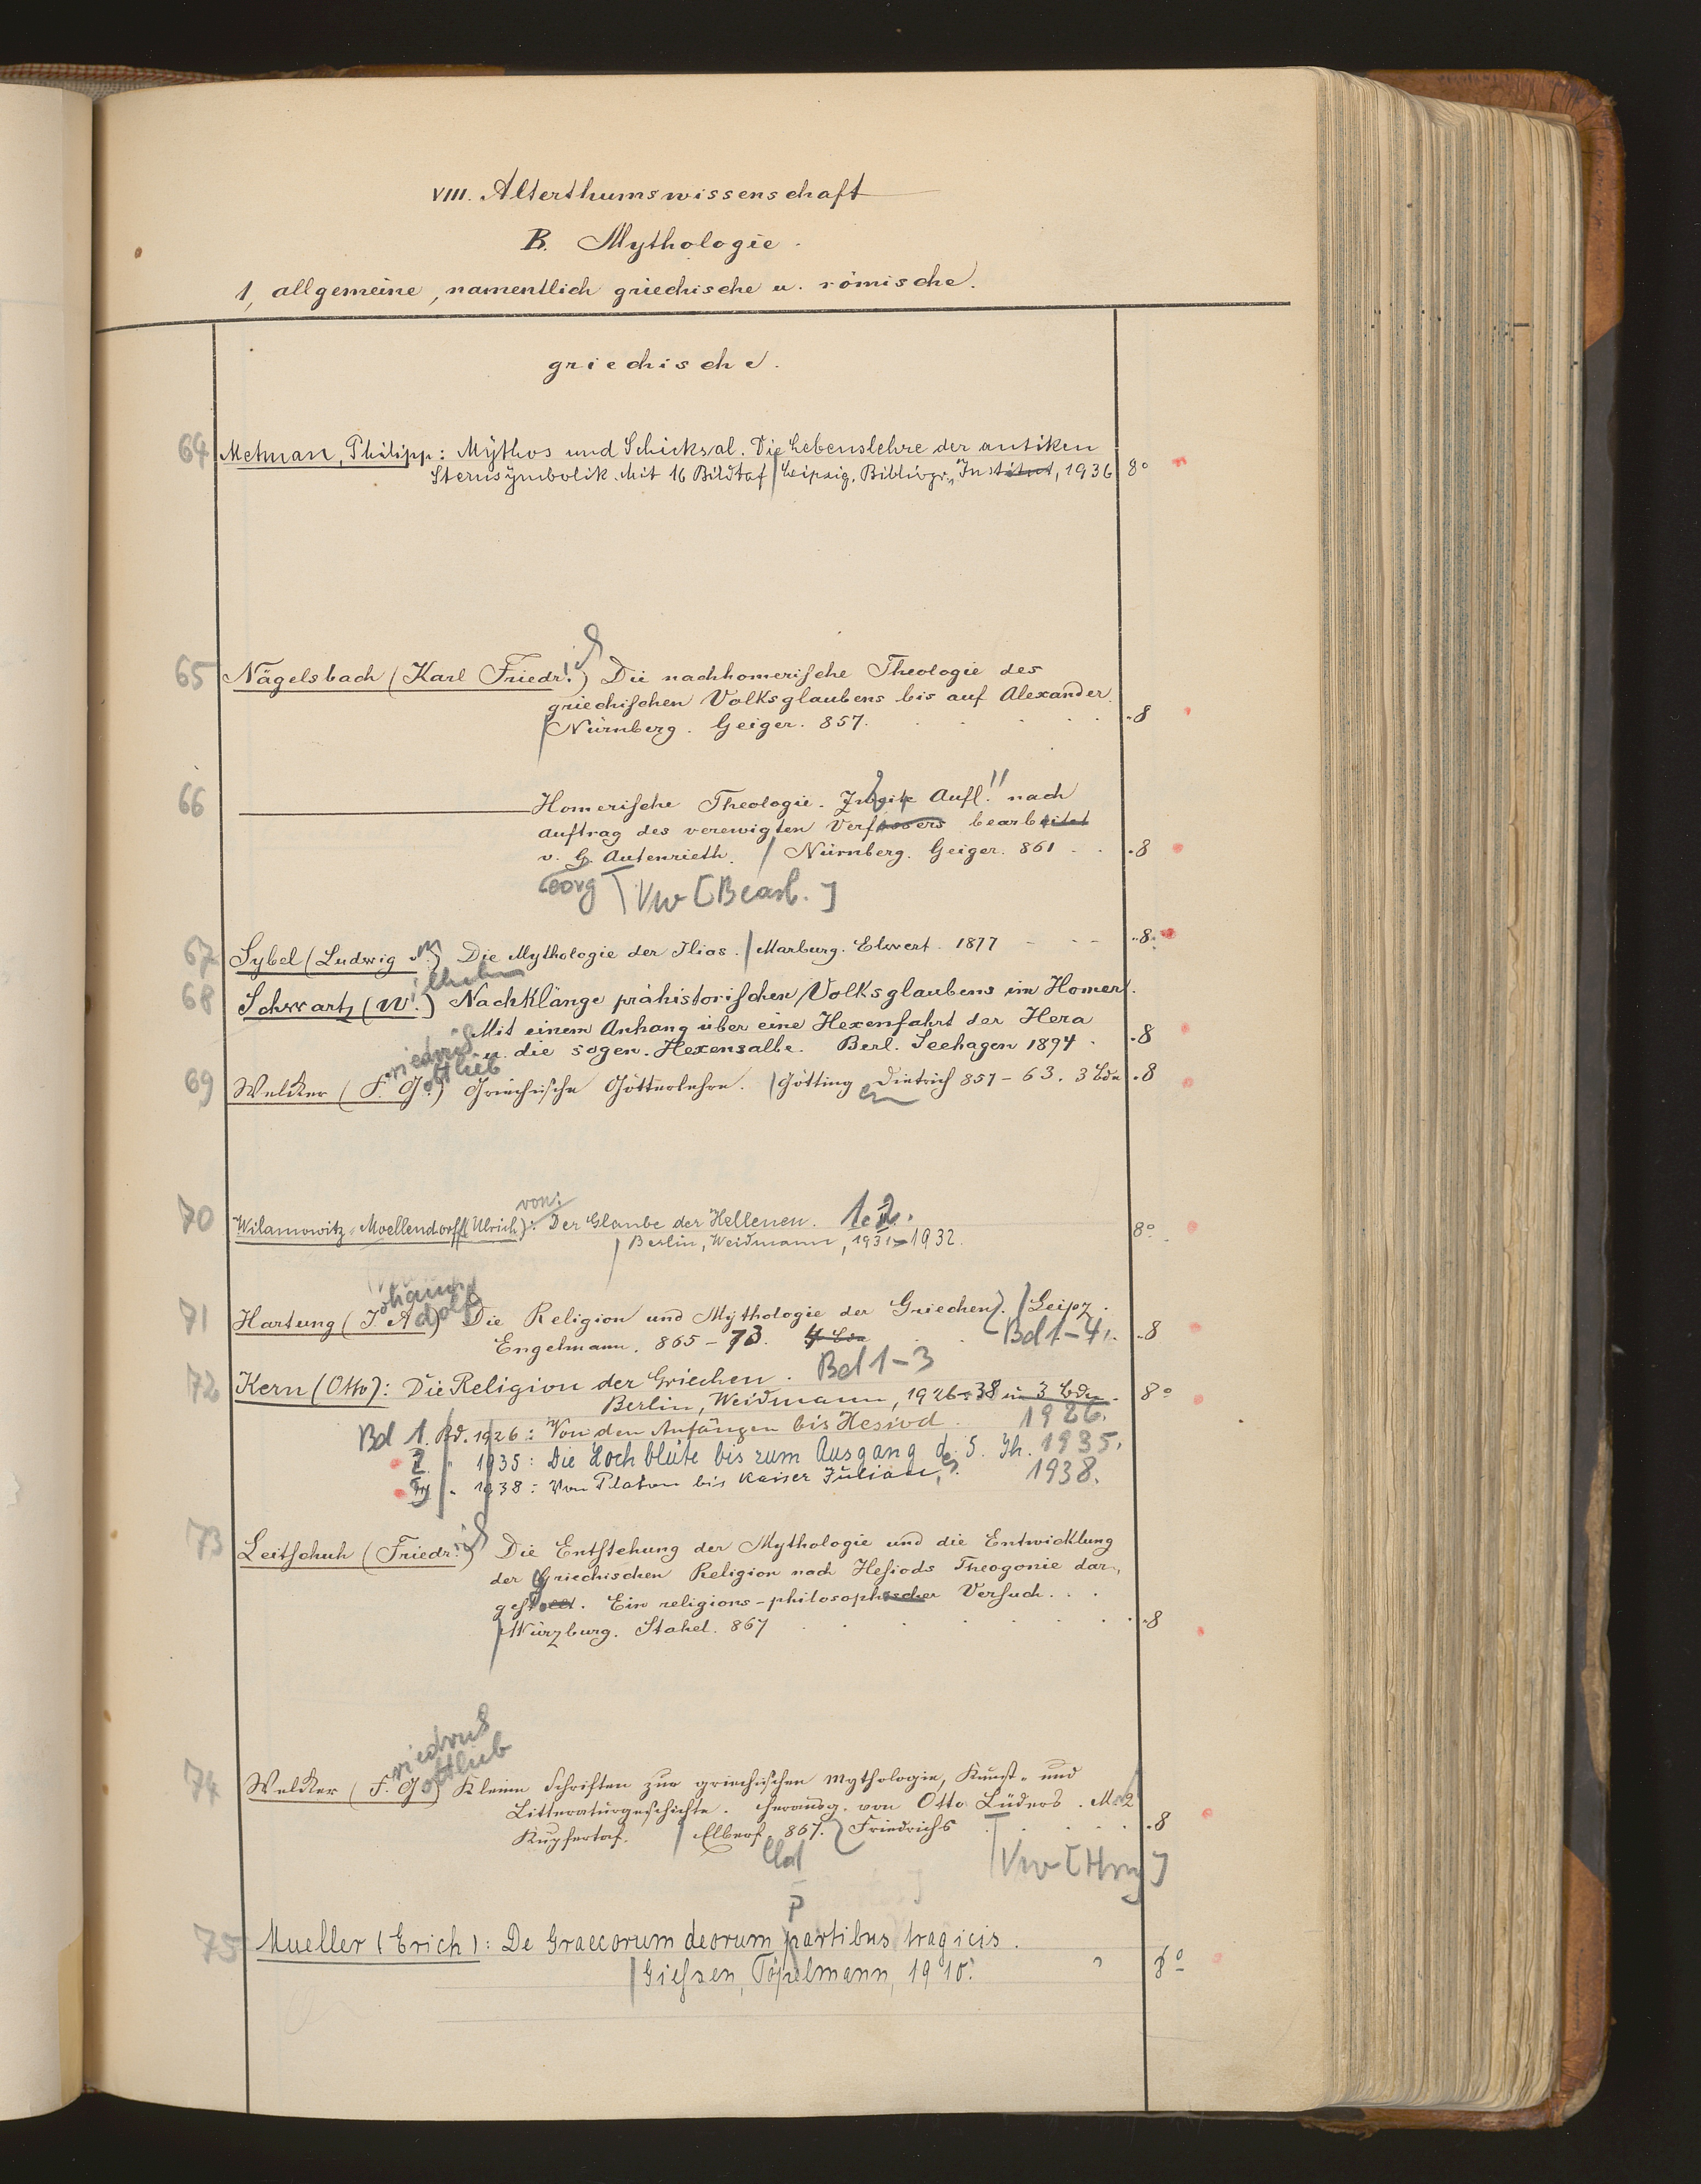 VIII. Alterthumswissenschaft
B. Mythologie.
1, allgemeine, namentlich griechische u. römische.
griechische.
64 Metman, Philipp: Mythos und Schicksal. Die Lebenslehre der antiken
Sternsymbolik. Mit 16 Bildtaf / Leipzig, Bibliogr. Institut, 1936 8°
65 Nägelsbach (Karl Friedr.ich) Die nachhomerische Theologie des
griechischen Volksglaubens bis auf Alexander.
Nürnberg. Geiger. 857. 8
66 Homerische Theologie. Zweite Aufl. nach
Auftrag des verewigten Verfassers bearbeitet
v. G. Autenrieth. / Nürnberg. Geiger. 861 8
eorg Vw [Bearb.]
67 Sybel (Ludwig v.) Die Mythologie der Ilias. / Marburg. Elwert. 1877 8.
ilhelm
68 Schwartz (W.) Nachklänge prähistorischen Volksglaubens im Homer.
Mit einem Anhang über eine Hexenfahrt der Hera
u. die sogen. Hexensalbe. Berl. Seehagen 1894. 8
riedrich ottlieb
69 Welcker (F. G.) Griechische Götterlehre. / Götting Dietrich 857-63. 3 Bde 8
en
von:
70 Wilamowitz-Moellendorff (Ulrich): Der Glaube der Hellenen. 1.2.
Berlin, Weidmann, 1931-1932. 8°
ohann
71 Hartung (J. Adolf) Die Religion und Mythologie der Griechen. / Leipz.
Engelmann. 865-73. 4 Bde Bd 1-4. 8
72 Kern (Otto): Die Religion der Griechen. Bd 1-3
Berlin, Weidmann, 1926-38 in 3 Bdn. 8°
Bd 1. Bd. 1926: Von den Anfängen bis Hesiod. 1926.
2. " 1935: Die Hochblüte bis zum Ausgang des 5. Jh. 1935.
3 " 1938: Von Platon bis Kaiser Julian. 1938.
73 Leitschuh (Friedr.ich) Die Entstehung der Mythologie und die Entwicklung
der Griechischen Religion nach Hesiods Theogonie dar-
gest. Ein religions-philosophischer Versuch.
Würzburg. Stahel. 867 8
riedrich
ottlieb
74 Welcker (F. G.) Kleine Schriften zur griechischen Mythologie, Kunst- und
Litteraturgeschichte. Herausg. von Otto Lüders. M. 2
Kupfertaf. / Elberf. 867. Friedrichs 8
eld Vw [Hrsg]
p
75 Mueller (Erich): De Graecorum deorum partibus tragicis.
Giessen, Töpelmann, 1910. 8°